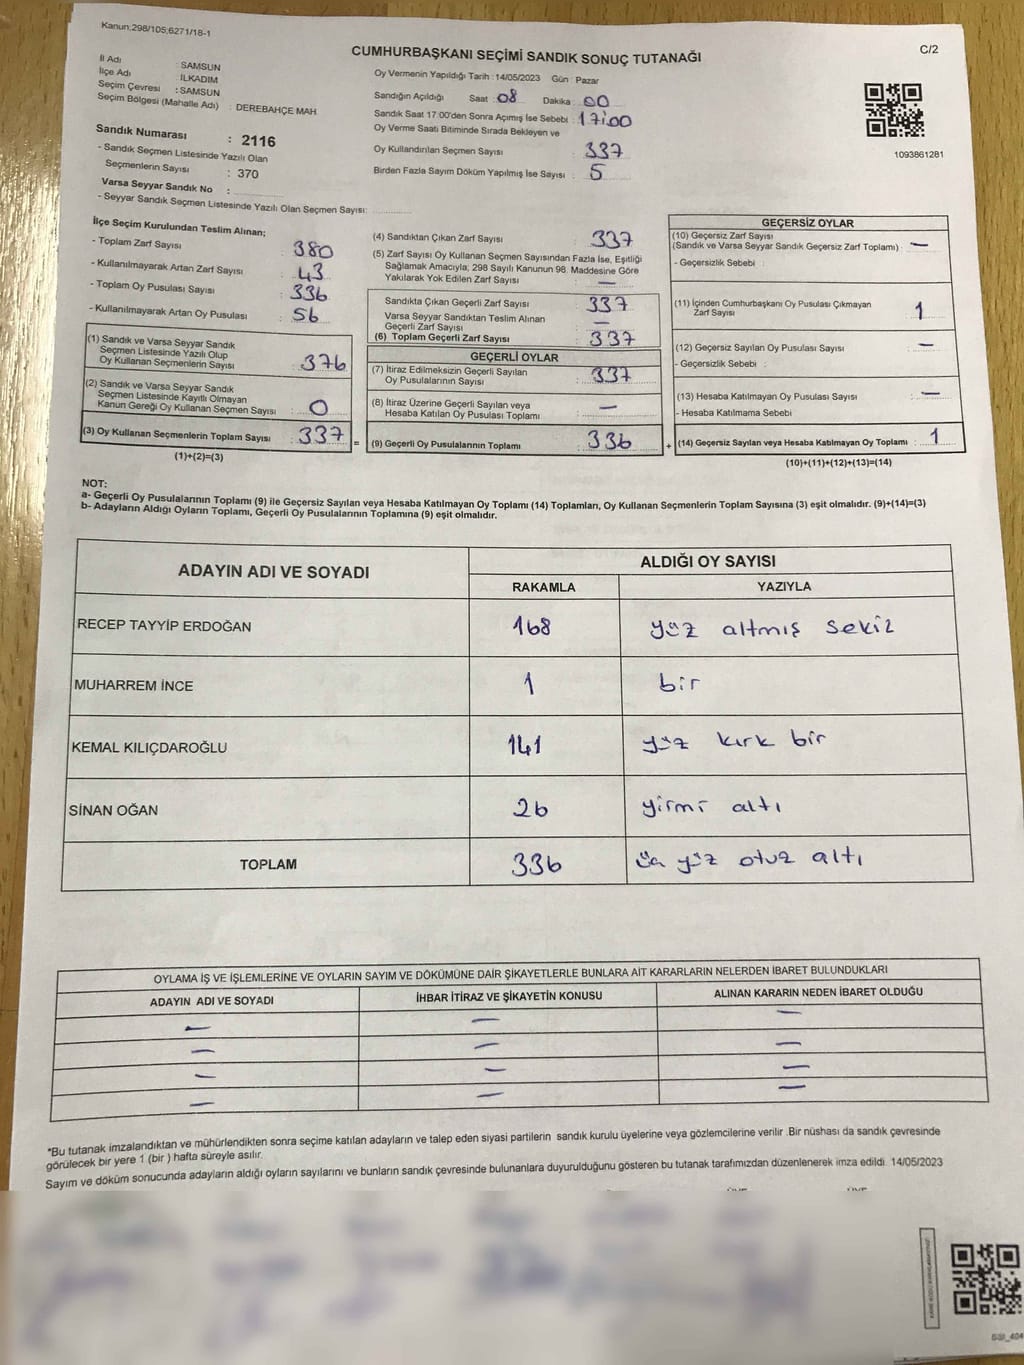 Kanun:298/105;6271/18-1
CUMHURBAŞKANI SEÇİMİ SANDIK SONUÇ TUTANAĞI
C/2
İl Adı : SAMSUN
İlçe Adı : İLKADIM
Seçim Çevresi : SAMSUN
Seçim Bölgesi (Mahalle Adı) : DEREBAHÇE MAH
Sandık Numarası : 2116
- Sandık Seçmen Listesinde Yazılı Olan
Seçmenlerin Sayısı : 370
Varsa Seyyar Sandık No :
- Seyyar Sandık Seçmen Listesinde Yazılı Olan Seçmen Sayısı:
Oy Vermenin Yapıldığı Tarih : 14/05/2023 Gün : Pazar
Sandığın Açıldığı Saat : 08 Dakika : 00
Sandık Saat 17.00'den Sonra Açımış İse Sebebi : 17:00
Oy Verme Saati Bitiminde Sırada Bekleyen ve
Oy Kullandırılan Seçmen Sayısı : 337
Birden Fazla Sayım Döküm Yapılmış İse Sayısı : 5
1093861281
İlçe Seçim Kurulundan Teslim Alınan;
- Toplam Zarf Sayısı : 380
- Kullanılmayarak Artan Zarf Sayısı : 43
- Toplam Oy Pusulası Sayısı : 336
- Kullanılmayarak Artan Oy Pusulası : 56
(1) Sandık ve Varsa Seyyar Sandık
Seçmen Listesinde Yazılı Olup
Oy Kullanan Seçmenlerin Sayısı : 376
(2) Sandık ve Varsa Seyyar Sandık
Seçmen Listesinde Kayıtlı Olmayan
Kanun Gereği Oy Kullanan Seçmen Sayısı : 0
(3) Oy Kullanan Seçmenlerin Toplam Sayısı : 337 =
(1)+(2)=(3)
(4) Sandıktan Çıkan Zarf Sayısı : 337
(5) Zarf Sayısı Oy Kullanan Seçmen Sayısından Fazla İse, Eşitliği
Sağlamak Amacıyla; 298 Sayılı Kanunun 98. Maddesine Göre
Yakılarak Yok Edilen Zarf Sayısı : —
Sandıkta Çıkan Geçerli Zarf Sayısı : 337
Varsa Seyyar Sandıktan Teslim Alınan
Geçerli Zarf Sayısı : —
(6) Toplam Geçerli Zarf Sayısı : 337
GEÇERLİ OYLAR
(7) İtiraz Edilmeksizin Geçerli Sayılan
Oy Pusulalarının Sayısı : 337
(8) İtiraz Üzerine Geçerli Sayılan veya
Hesaba Katılan Oy Pusulası Toplamı : —
(9) Geçerli Oy Pusulalarının Toplamı : 336 +
GEÇERSİZ OYLAR
(10) Geçersiz Zarf Sayısı
(Sandık ve Varsa Seyyar Sandık Geçersiz Zarf Toplamı) : —
- Geçersizlik Sebebi :
(11) İçinden Cumhurbaşkanı Oy Pusulası Çıkmayan
Zarf Sayısı : 1
(12) Geçersiz Sayılan Oy Pusulası Sayısı : —
- Geçersizlik Sebebi :
(13) Hesaba Katılmayan Oy Pusulası Sayısı : —
- Hesaba Katılmama Sebebi
(14) Geçersiz Sayılan veya Hesaba Katılmayan Oy Toplamı : 1
(10)+(11)+(12)+(13)=(14)
NOT:
a- Geçerli Oy Pusulalarının Toplamı (9) ile Geçersiz Sayılan veya Hesaba Katılmayan Oy Toplamı (14) Toplamları, Oy Kullanan Seçmenlerin Toplam Sayısına (3) eşit olmalıdır. (9)+(14)=(3)
b- Adayların Aldığı Oyların Toplamı, Geçerli Oy Pusulalarının Toplamına (9) eşit olmalıdır.
ADAYIN ADI VE SOYADI ALDIĞI OY SAYISI
RAKAMLA YAZIYLA
RECEP TAYYİP ERDOĞAN 168 yüz altmış sekiz
MUHARREM İNCE 1 bir
KEMAL KILIÇDAROĞLU 141 yüz kırk bir
SİNAN OĞAN 26 yirmi altı
TOPLAM 336 üç yüz otuz altı
OYLAMA İŞ VE İŞLEMLERİNE VE OYLARIN SAYIM VE DÖKÜMÜNE DAİR ŞİKAYETLERLE BUNLARA AİT KARARLARIN NELERDEN İBARET BULUNDUKLARI
ADAYIN ADI VE SOYADI İHBAR İTİRAZ VE ŞİKAYETİN KONUSU ALINAN KARARIN NEDEN İBARET OLDUĞU
— — —
— — —
— — —
— — —
*Bu tutanak imzalandıktan ve mühürlendikten sonra seçime katılan adayların ve talep eden siyasi partilerin sandık kurulu üyelerine veya gözlemcilerine verilir .Bir nüshası da sandık çevresinde
görülecek bir yere 1 (bir ) hafta süreyle asılır.
Sayım ve döküm sonucunda adayların aldığı oyların sayılarını ve bunların sandık çevresinde bulunanlara duyurulduğunu gösteren bu tutanak tarafımızdan düzenlenerek imza edildi. 14/05/2023